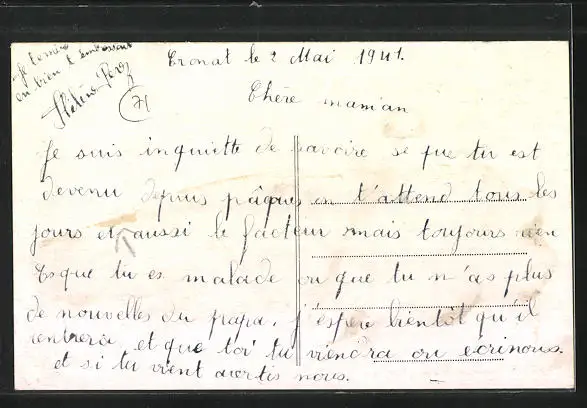 Cronat le 2 Mai 1941.
Chère maman
Je suis inquiette de savoire se que tu est
devenu depuis pâques on t'attend tous les
jours et aussi le facteur mais toujours rien
Esque tu es malade ou que tu n'as plus
de nouvelles du papa. j'espère bientôt qu'il
rentrera et que toi tu viendra ou écrinous.
et si tu vient avertis nous.
Je termine
en bien t'embrassant
Hélène
71